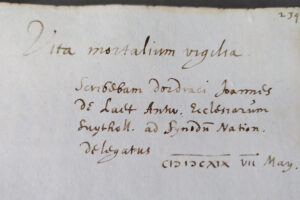 239
Vita mortalium vigilia.
Scribebam dordraci Joannes
de Laet Antw. Ecclesiarum
Suythóll. ad Synodū Nation.
delegatus
CIƆIƆCXIX VII May.